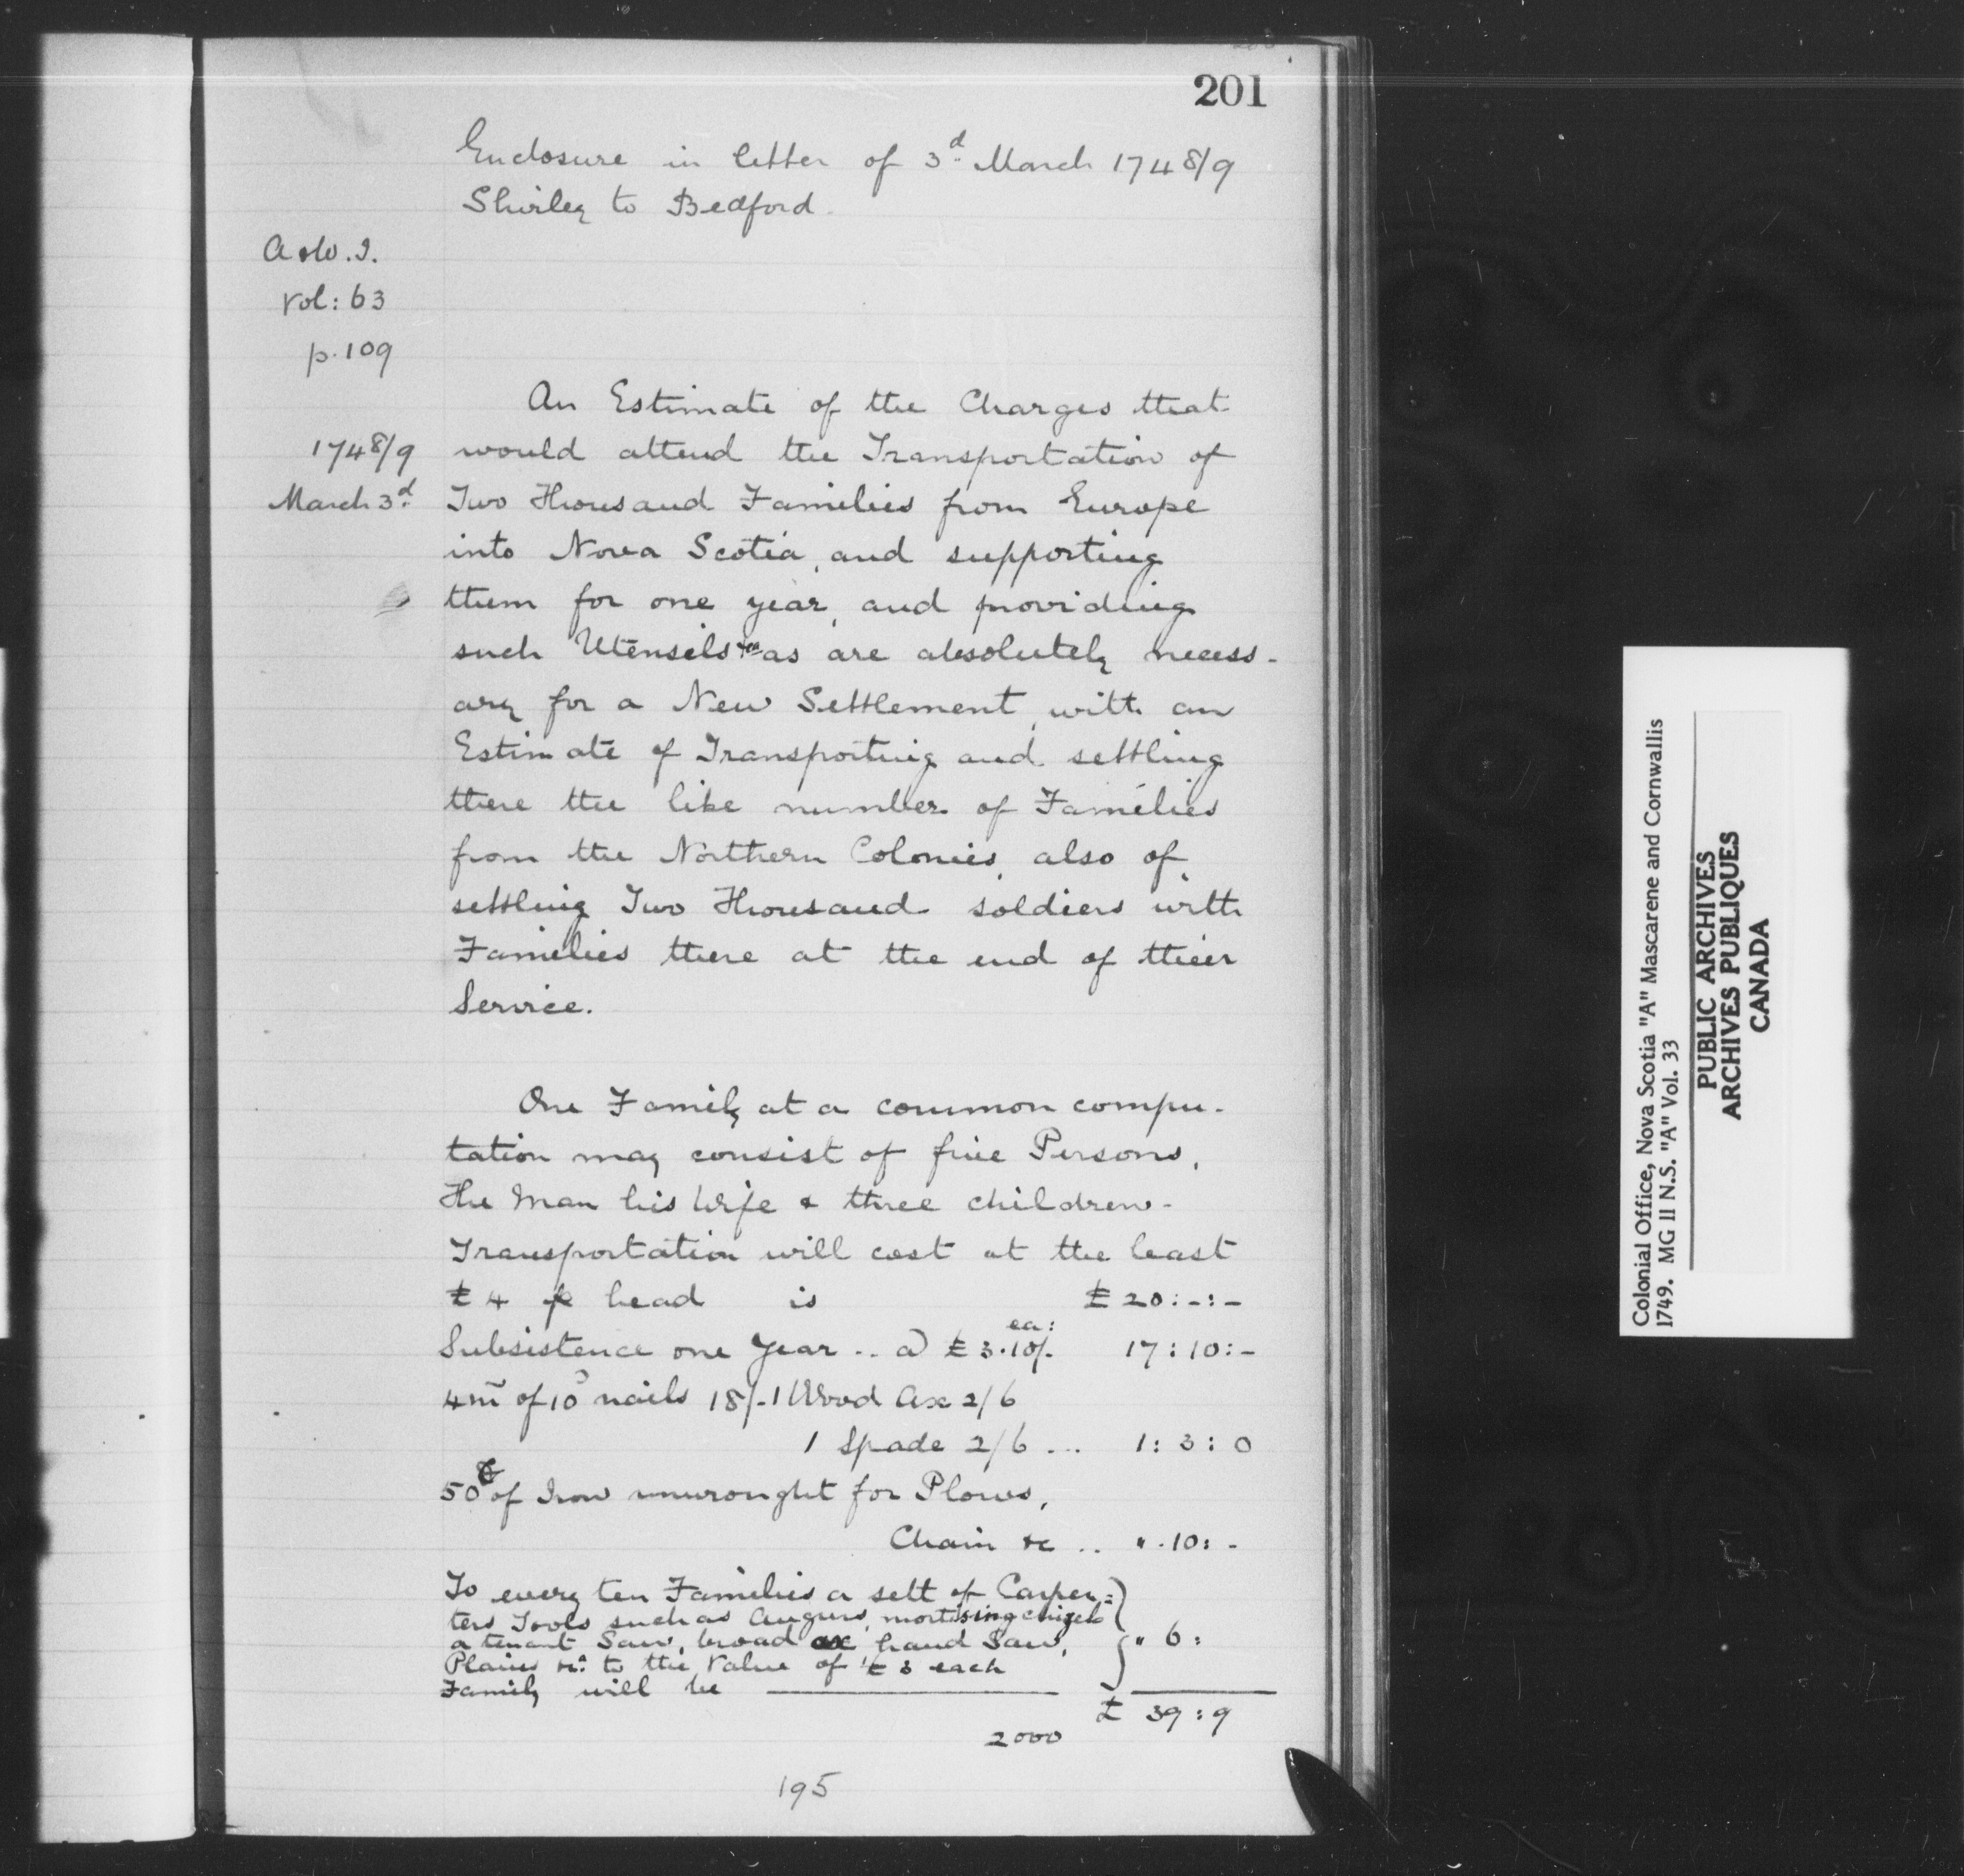 201
Enclosure in letter of 3d March 1748/9
Shirley to Bedford.
A & W. I.
Vol: 63
p. 109
An Estimate of the Charges that
1748/9
would attend the Transportation of
March 3d
Two Thousand Families from Europe
into Nova Scotia, and supporting
them for one year, and providing
such Utensils &ca as are absolutely necess-
ary for a New Settlement, with an
Estimate of Transporting and settling
there the like number of Families
from the Northern Colonies, also of
settling Two Thousand soldiers with
Families there at the end of their
Service.
One Family at a common compu-
tation may consist of five Persons,
the Man his Wife & three children-
Transportation will cost at the least
£4 p head is £20:-:-
Subsistence one Year .. @ £3.10/. ea: 17:10:-
4m of 10d nails 18/-1 Wood Ax 2/6
1 Spade 2/6 ... 1:3:0
50 of Iron unwrought for Plows,
Chain &c .. ". 10: -
To every ten Families a sett of Carpen=
ters Tools such as Augurs, mortising chizels
a tenant Saw, broad ax hand Saw,
Plains &ca to the Value of £3 each
Family will be " 6:
£ 39:9
2000
195
Colonial Office, Nova Scotia "A" Mascarene and Cornwallis
1749. MG 11 N.S. "A" Vol. 33
PUBLIC ARCHIVES
ARCHIVES PUBLIQUES
CANADA